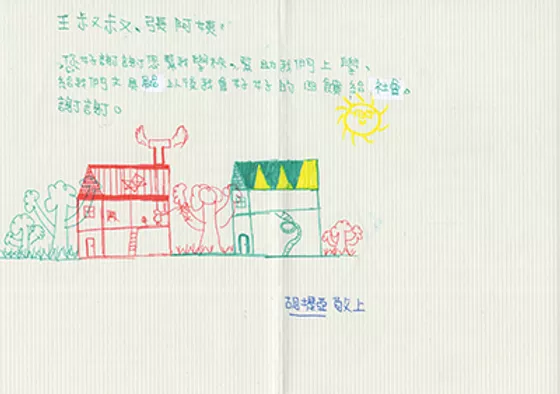 王叔叔、張阿姨:
您好謝謝您幫我學校、幫助我們上學、
給我們 以後我會好好的回饋給社會。
謝謝。
敬上